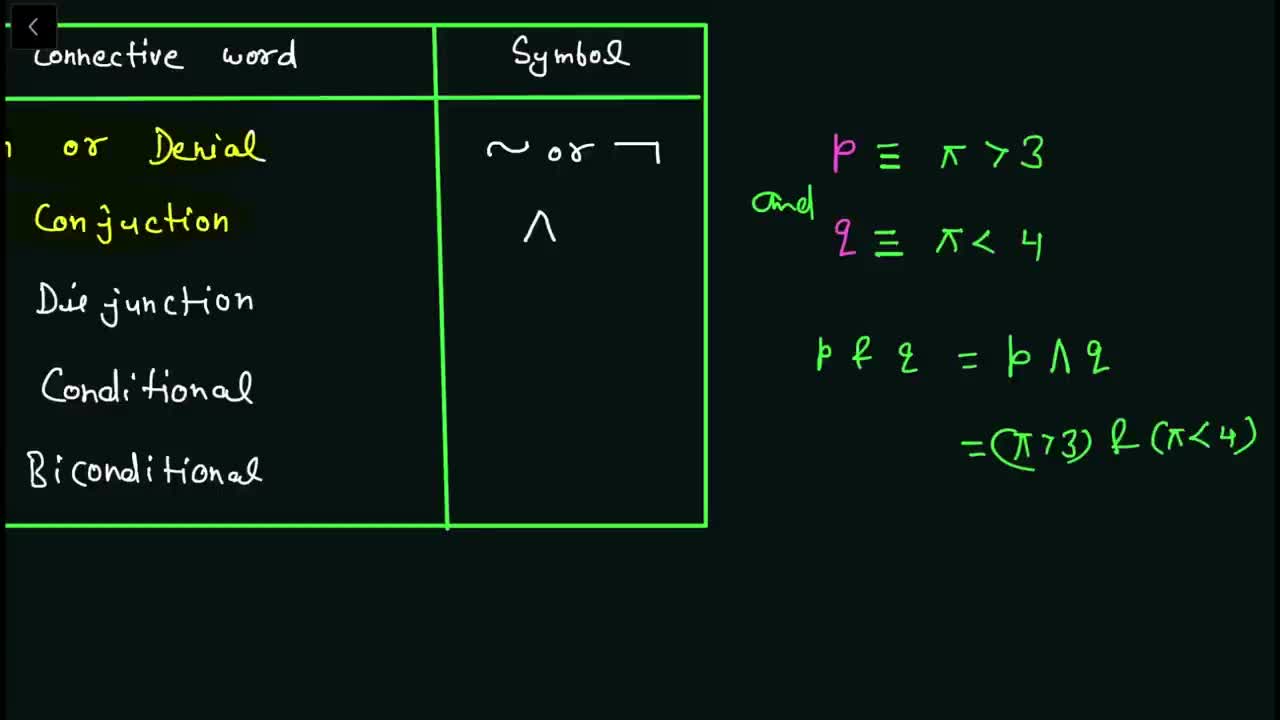 Connective word Symbol
n or Denial ~ or ¬
Conjuction ∧
Disjunction
Conditional
Biconditional
p ≡ π > 3
and
q ≡ π < 4
p & q = p ∧ q
= (π > 3) & (π < 4)